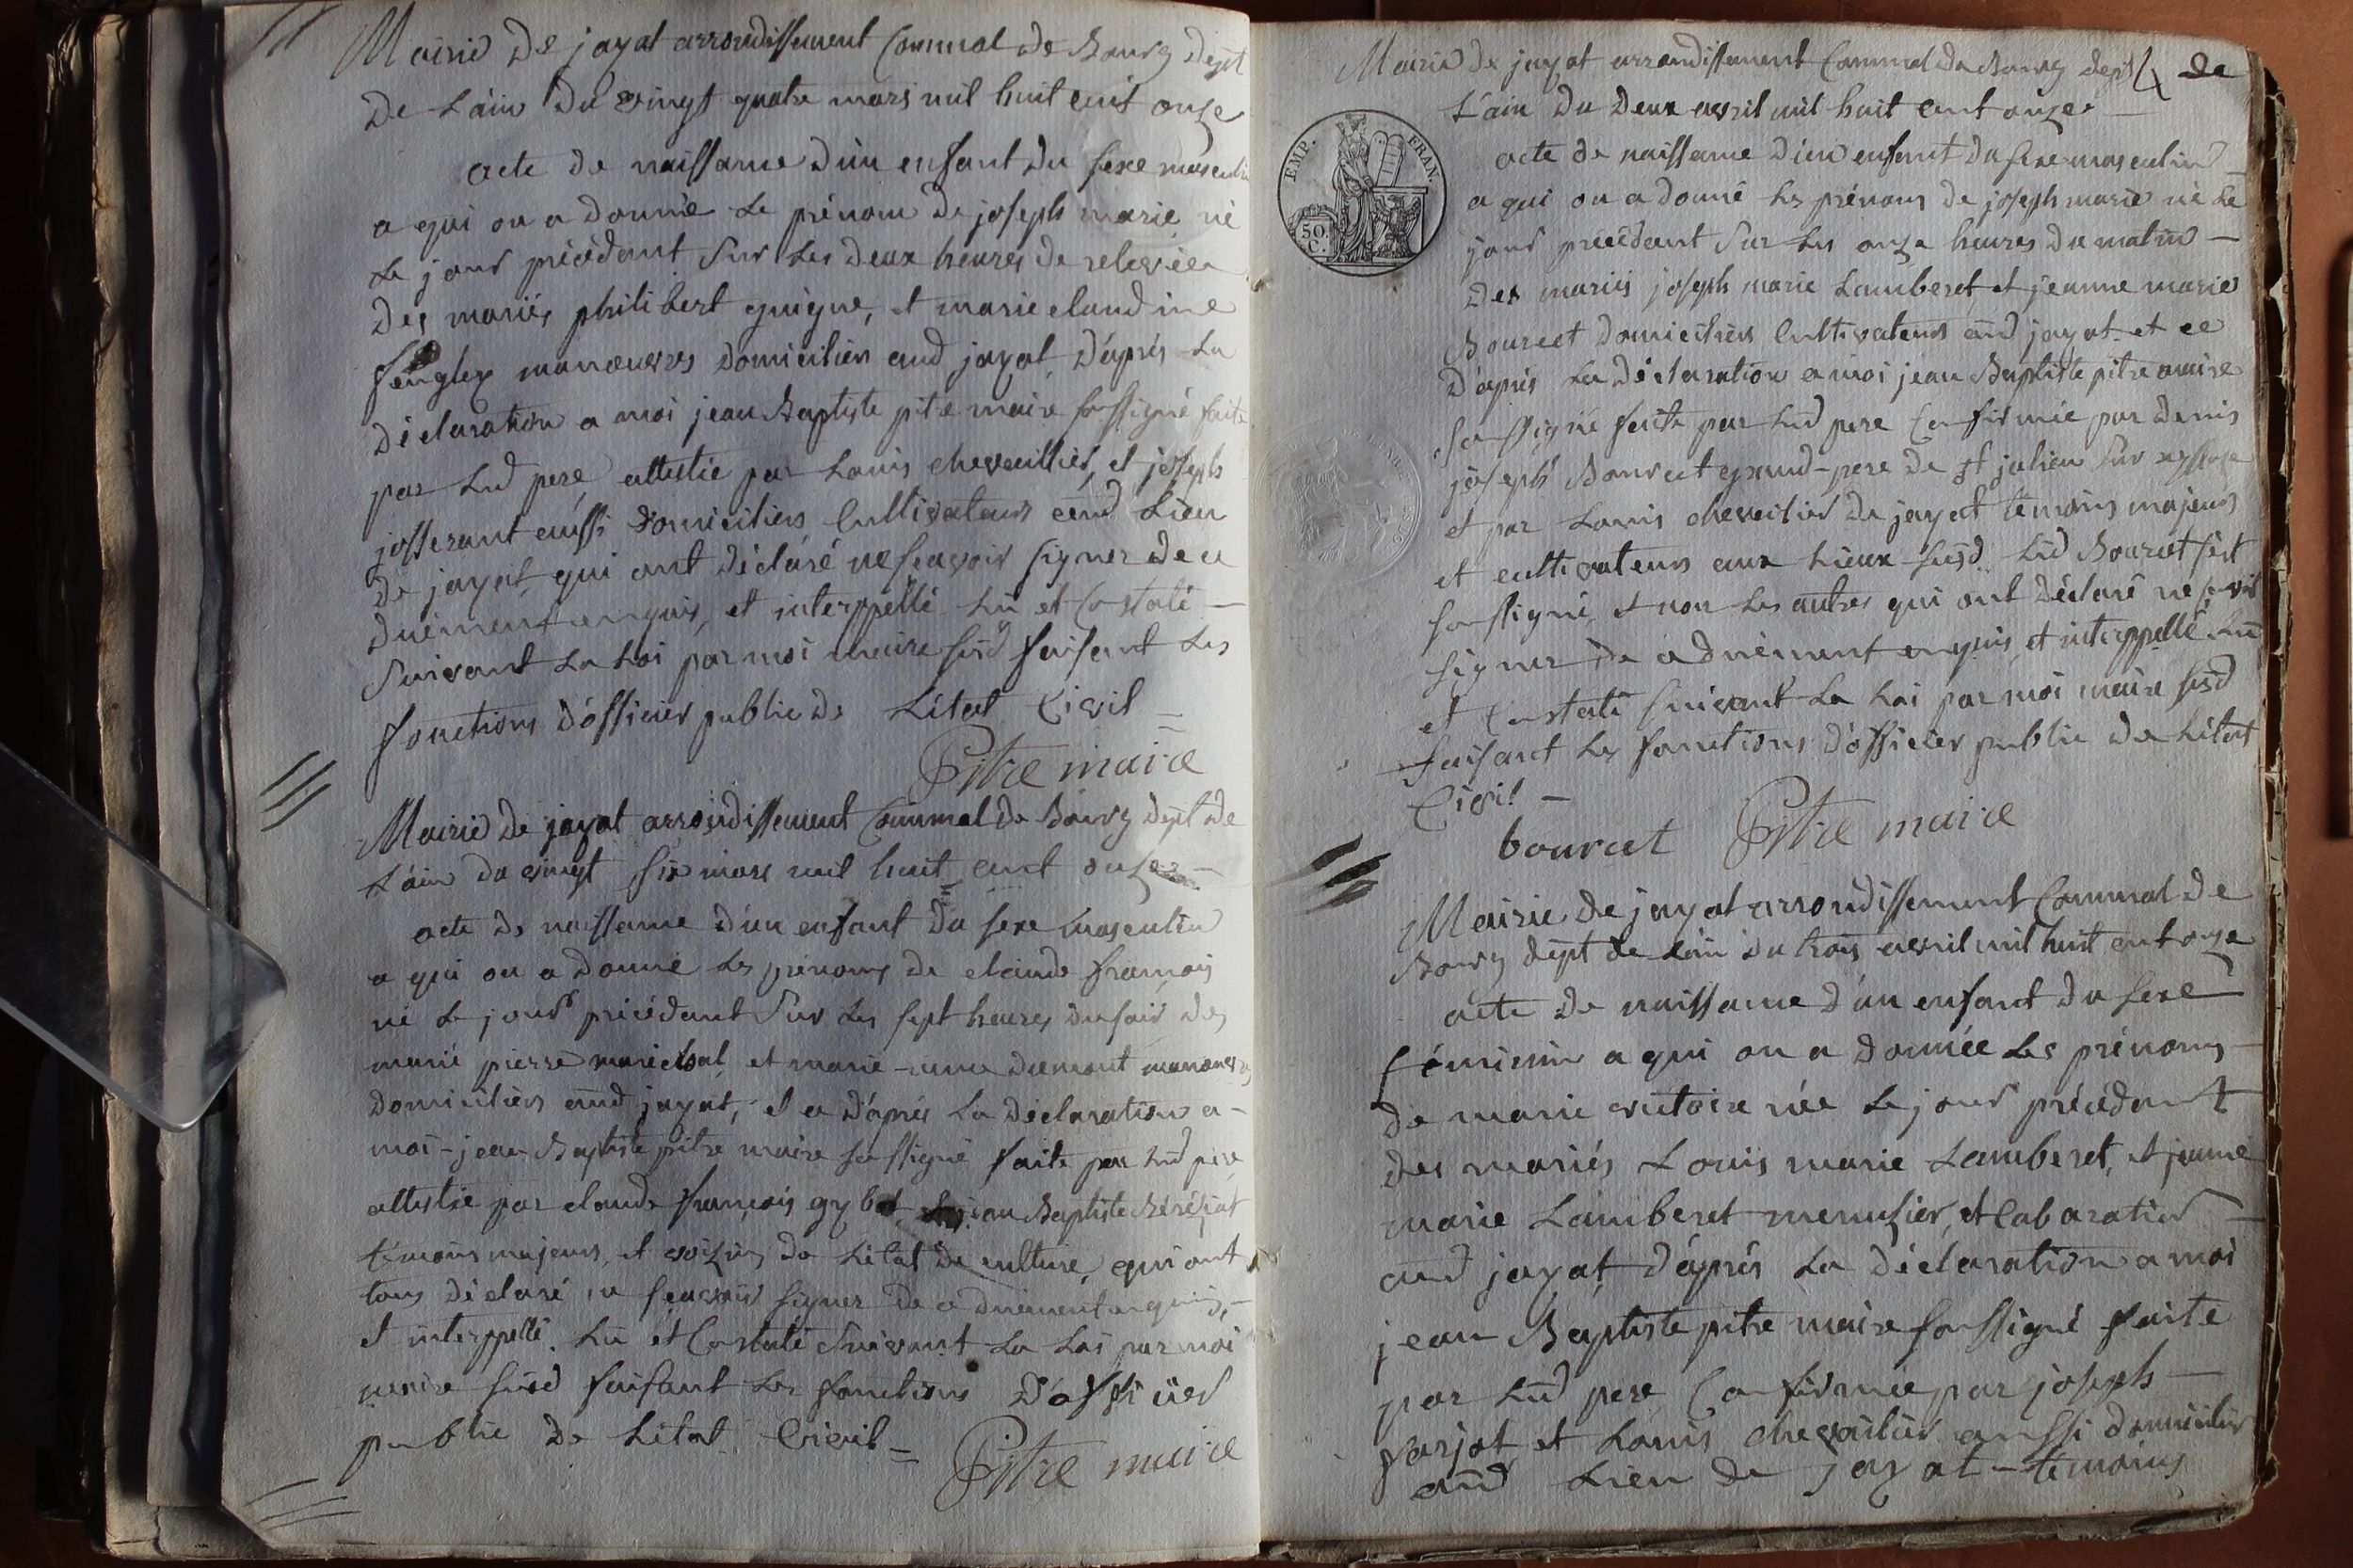 Mairie de jayat arrondissement Commal de Bourg dept
de L'ain du vingt quatre mars mil huit cent onze
acte de naissance d'un enfant du sexe masculin
a qui on a donné le prénom de joseph marie né
le jour précédant sur les deux heures de relevée
des mariés philibert guigue, et marie claudine
manœuvres domiciliés aud jayat, d'aprés la
déclaration a moi jean Baptiste pitre maire soussigné faite
par Lud pere attestée par Louis chevailler, et joseph
josserant aussi domiciliés Cultivateurs aud Lieu
de jayat, qui ont déclaré ne scavoir signer de ce
duëment enquis, et interppellé Lu et Constaté —
suivant La Loi par moi maire susd faisant Les
fonctions d'officier public de L'état Civil =
Pitre maire
Mairie de jayat arrondissement Commal de Bourg dept de
L'ain du vingt six mars mil huit cent onze —
acte de naissance d'un enfant du sexe masculin
a qui on a donné les prénoms de claude françois
né le jour précédant sur les sept heures du soir des
marié pierre marechal, et marie dumont manœuvres
domiciliés aud jayat, et ce d'aprés La déclaration a -
moi - jean Baptiste pitre maire soussigné faite par Lud pere
attestée par claude françois gybot, jean Baptiste Béréziat
témoins majeurs, et voizins de L'état de culture, qui ont
tous déclaré ne scavoir signer de ce duëment enquis, -
et interppellé. Lu et Constaté suivant La Loi par moi
maire susd faisant Les fonctions d'officier
public de L'état Civil =
Pitre maire
Mairie de jayat arrondissement Commal de Bourg dept 4 de
L'ain du deux avril mil huit cent onze —
acte de naissance d'un enfant du sexe masculin
a qui on a donné les prénoms de joseph marie né le
jour précédant sur les onze heures du matin —
des mariés joseph marie Lamberet et jeanne marie
Bourcet domiciliés Cultivateurs aud jayat, et ce
d'aprés La déclaration a moi jean Baptiste pitre maire
soussigné faite par Lud pere Confirmée par denis
joseph Bourcet grand-pere de st julien sur ressouze
et par Louis chevailier de jayat témoins majeurs
et cultivateurs aux Lieux susd. Lud Bourcet s'est
soussigné, et non les autres qui ont déclaré ne scavoir
signer de ce duëment enquis, et interppellé Lu
et Constaté suivant La Loi par moi maire susd
faisant Les fonctions d'officier public de L'état
Civil —
bourcet Pitre maire
EMP. FRAN.
50.
C.
Mairie de jayat arrondissement Commal de
Bourg dept de L'ain du trois avril mil huit cent onze
acte de naissance d'un enfant du sexe
féminin a qui on a donnée Les prénoms —
de marie victoire née Le jour précédant
des mariés Louis marie Lamberet, et jeanne
marie Lamberet menuzier, et Cabaratier —
aud jayat, d'aprés La déclaration a moi
jean Baptiste pitre maire soussigné faite
par Lud pere Confirmée par joseph —
farjat et Louis chevailier aussi domiciliés
aud Lieu de jayat - témoins